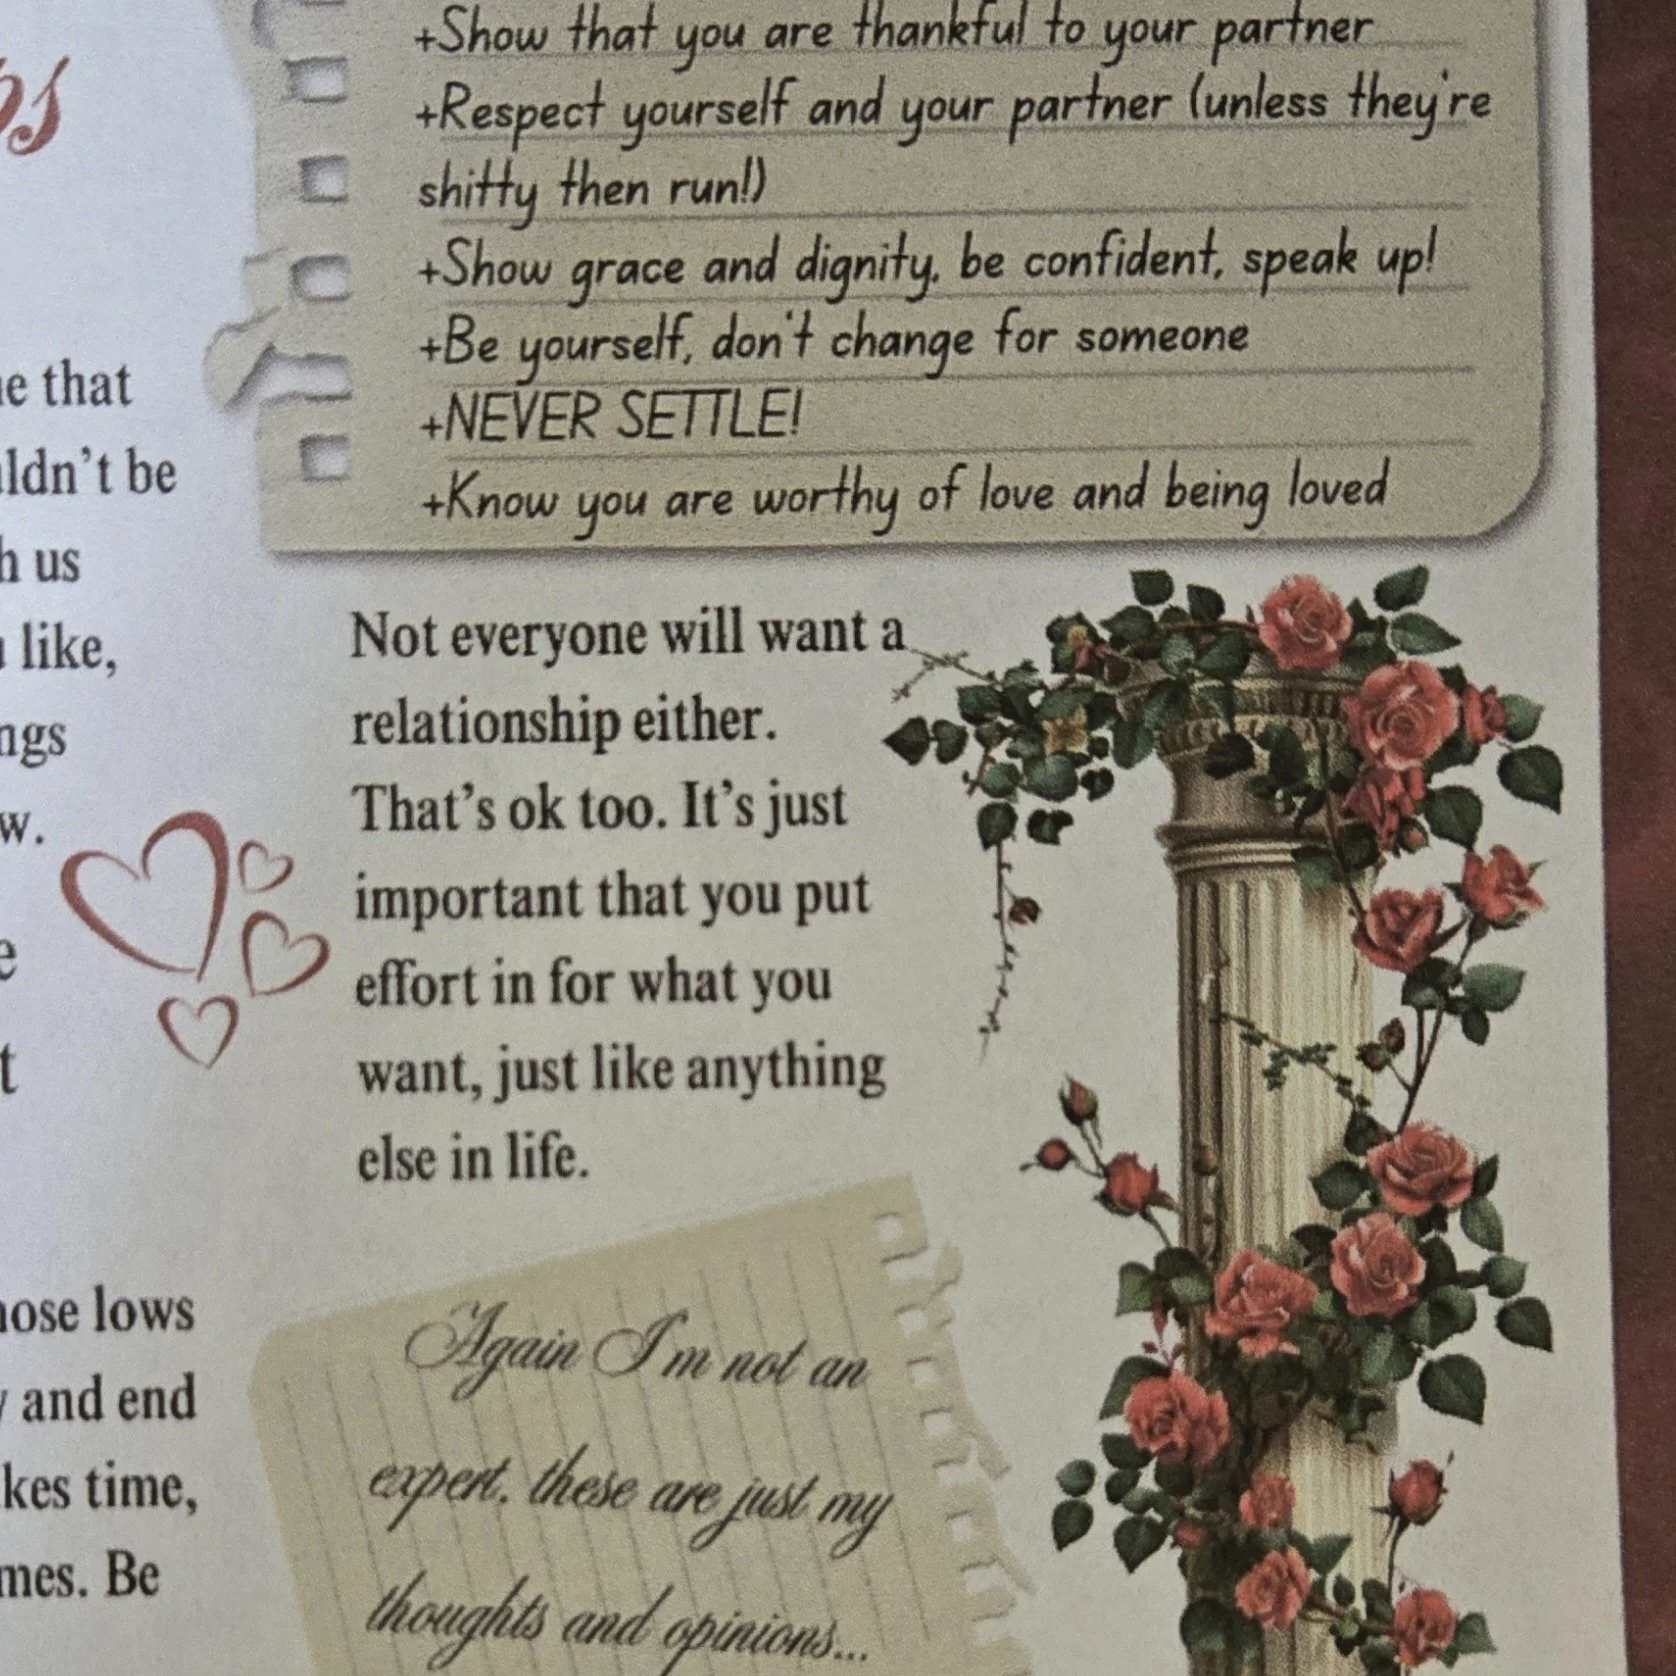 +Show that you are thankful to your partner
+Respect yourself and your partner (unless they're
shitty then run!)
+Show grace and dignity, be confident, speak up!
+Be yourself, don't change for someone
+NEVER SETTLE!
+Know you are worthy of love and being loved
that
be
us
like,
lows
and end
time,
Be
Not everyone will want a
relationship either.
That's ok too. It's just
important that you put
effort in for what you
want, just like anything
else in life.
Again I'm not an
expert, these are just my
thoughts and opinions...